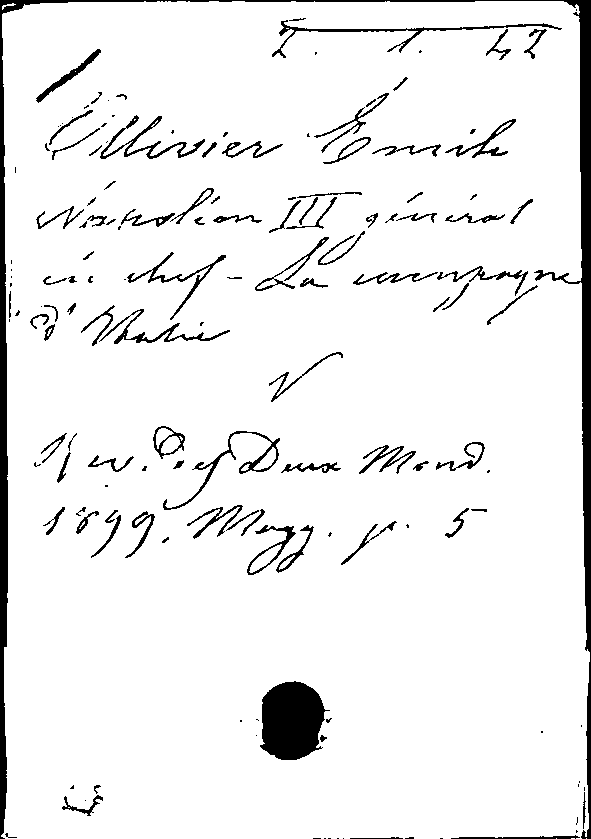 2. 1. 42
Ollivier Émile
Napoléon III général
en chef - La campagne
d'Italie
V
Rev. des Deux Mond.
1899. Magg. p. 5